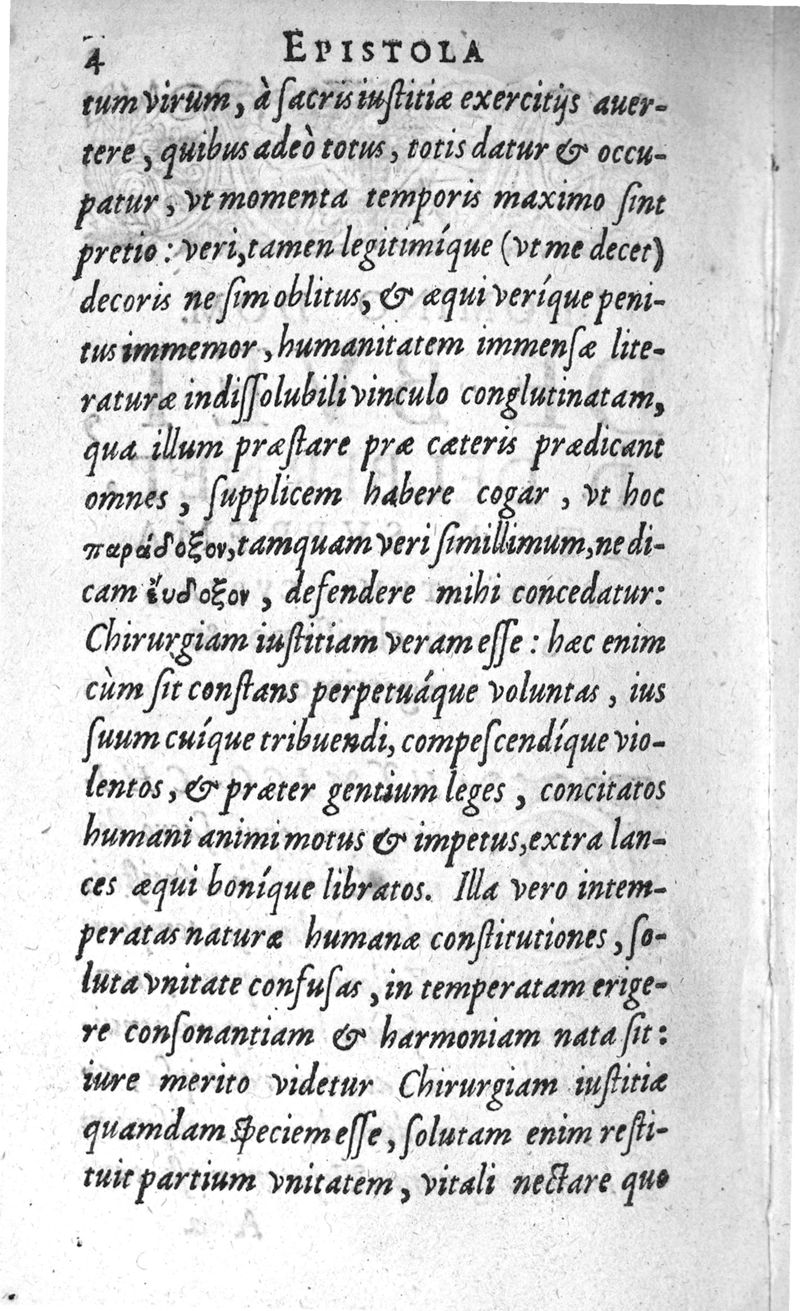 4 EPISTOLA
tum virum, à ſacris iuſtitiæ exercitijs auer-
tere, quibus adeò totus, totis datur & occu-
patur, vt momenta temporis maximo ſint
pretio: veri, tamen legitimíque (vt me decet)
decoris ne ſim oblitus, & æqui veríque peni-
tus immemor, humanitatem immenſæ lite-
raturæ indiſſolubili vinculo conglutinatam,
qua illum præſtare præ cæteris prædicant
omnes, ſupplicem habere cogar, vt hoc
παράδοξον, tamquam veri ſimillimum, ne di-
cam ἔνδοξον, defendere mihi concedatur:
Chirurgiam iuſtitiam veram eſſe: hæc enim
cùm ſit conſtans perpetuáque voluntas, ius
ſuum cuíque tribuendi, compeſcendíque vio-
lentos, & præter gentium leges, concitatos
humani animi motus & impetus, extra lan-
ces æqui boníque libratos. Illa vero intem-
peratas naturæ humanæ conſtitutiones, ſo-
luta vnitate confuſas, in temperatam erige-
re conſonantiam & harmoniam nata ſit:
iure merito videtur Chirurgiam iuſtitiæ
quamdam ſpeciem eſſe, ſolutam enim reſti-
tuit partium vnitatem, vitali nectare quo